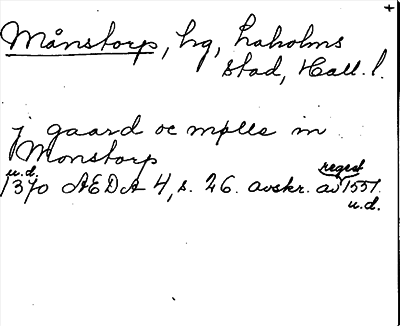 Månstorp, hg, Laholms
stad, Hall. l.
j gaard oc mølle in
Monstorp
u.d. regest
1370 AEDA 4, s. 26. avskr. av 1551.
u.d.